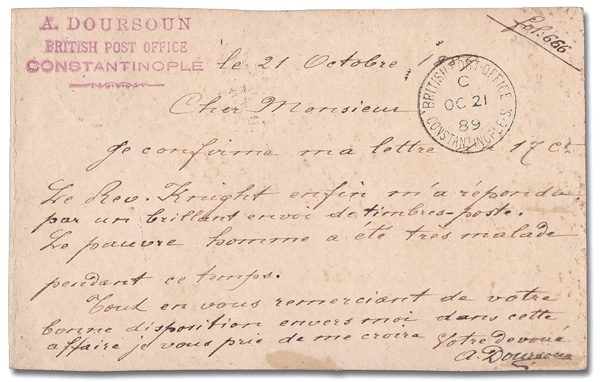 A. DOURSOUN
BRITISH POST OFFICE
CONSTANTINOPLE
fol: 666
le 21 Octobre 1889
BRITISH POST OFFICE
C
OC 21
89
CONSTANTINOPLE S.
Cher Monsieur
Je confirme ma lettre 17 ct
Le Rev. Knight enfin m'a répondu
par un brillant envoi de timbres-poste.
Le pauvre homme a été très malade
pendant ce temps.
Tout en vous remerciant de votre
bonne disposition envers moi dans cette
affaire je vous prie de me croire Votre devoué
A. Doursoun